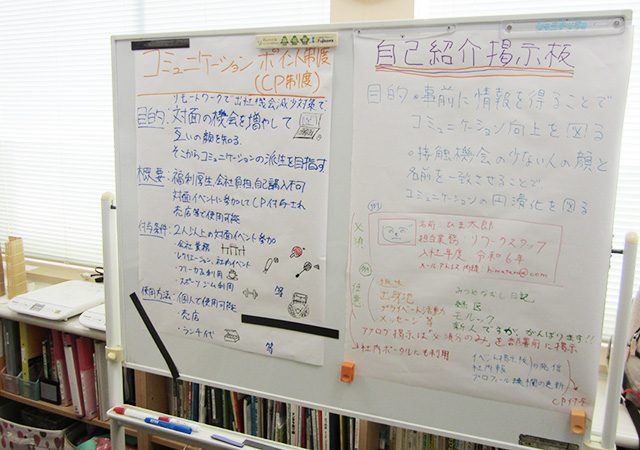 コミュニケーション ポイント制度
(CP制度)
リモートワークで出社機会減少対策で
目的：対面の機会を増やして
互いの顔を知る
そこからコミュニケーションの派生を目指す
概要：福利厚生、会社負担、自己購入不可
対面イベントに参加してCP付与され
売店等で使用可能
付与条件：2人以上の対面イベント参加
・会社業務
・レクリエーション、社内イベント
・フリーカフェ利用
・スポーツジム利用
等
使用方法：個人で使用可能
・売店
・ランチ代
等
自己紹介掲示板
目的 ・事前に情報を得ることで
コミュニケーション向上を図る
・接触機会の少ない人の顔と
名前を一致させることで
コミュニケーションの円滑化を図る
例)
必須
名前：ひま太郎
担当業務 リワークスタッフ
入社年度 令和6年
メールアドレス 内線 himataro@.com
例
任意
趣味
みつめなおし日記
出身地
プライベートな活動
モルック
メッセージ 等
新人ですが、がんばります!!
アナログ掲示は"必須分のみ"を部署前に掲示
→社内ポータルにも利用
イベント掲示板
社内報
の発信
プロフィール機欄の更新
CP付与